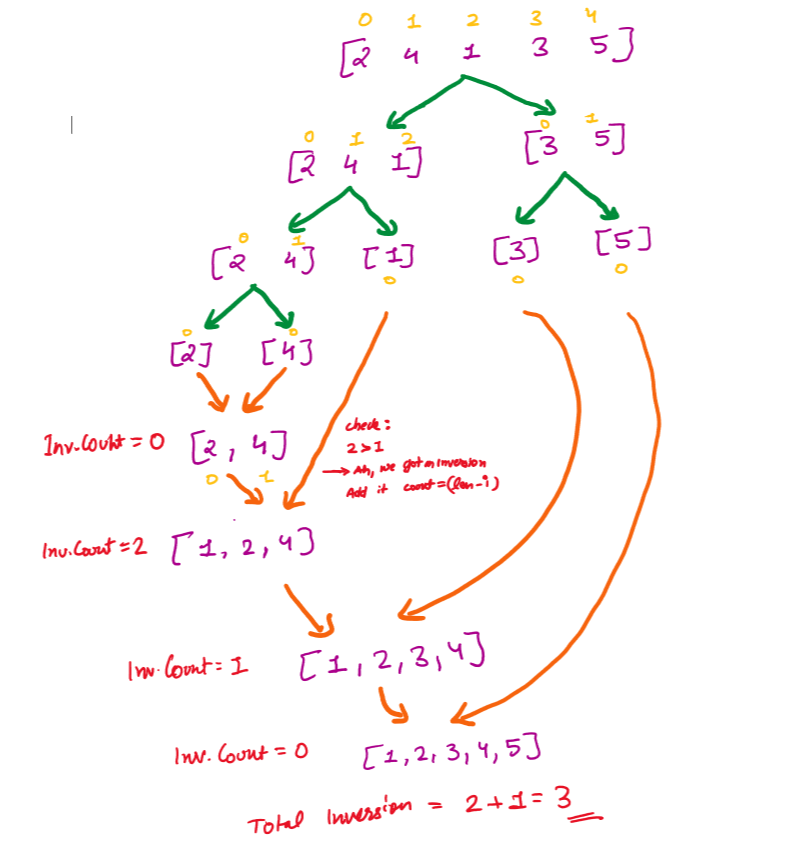 0 1 2 3 4
[2 4 1 3 5]
0 1 2
[2 4 1]
0 1
[3 5]
0 1
[2 4]
[1]
0
[3]
0
[5]
0
0
[2]
0
[4]
Inv.Count = 0 [2, 4]
0 1
check:
2>1
→ Ah, we got an inversion
Add it count=(len-i)
Inv.Count = 2 [1, 2, 4]
Inv.Count = 1 [1, 2, 3, 4]
Inv.Count = 0 [1, 2, 3, 4, 5]
Total Inversion = 2+1 = 3